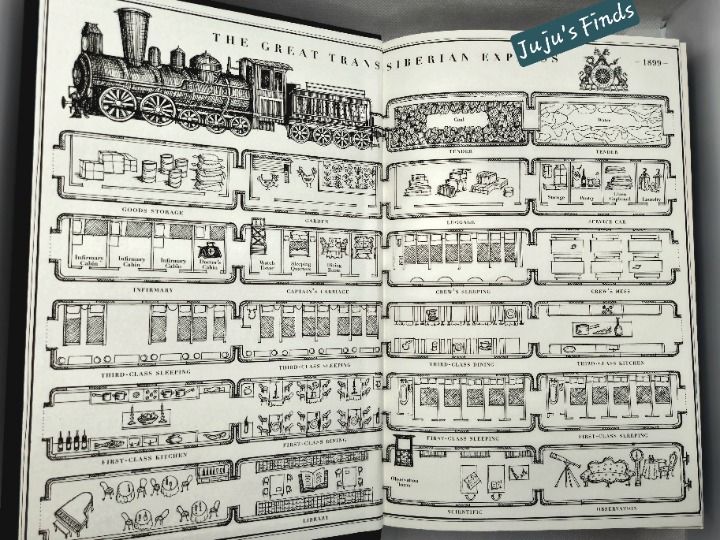 Juju's Finds
THE GREAT TRANS SIBERIAN EXPRESS
-1899-
Coal
Water
TENDER
TENDER
Storage
Pantry
Linen Cupboard
Laundry
GOODS STORAGE
GARDEN
LUGGAGE
SERVICE CAR
Infirmary Cabin
Infirmary Cabin
Infirmary Cabin
Doctor's Cabin
Watch Tower
Sleeping Quarters
Dining Room
INFIRMARY
CAPTAIN'S CARRIAGE
CREW'S SLEEPING
CREW'S MESS
THIRD-CLASS SLEEPING
THIRD-CLASS SLEEPING
THIRD-CLASS DINING
THIRD-CLASS KITCHEN
FIRST-CLASS KITCHEN
FIRST-CLASS DINING
FIRST-CLASS SLEEPING
FIRST-CLASS SLEEPING
Observation Tower
LIBRARY
SCIENTIFIC
OBSERVATION